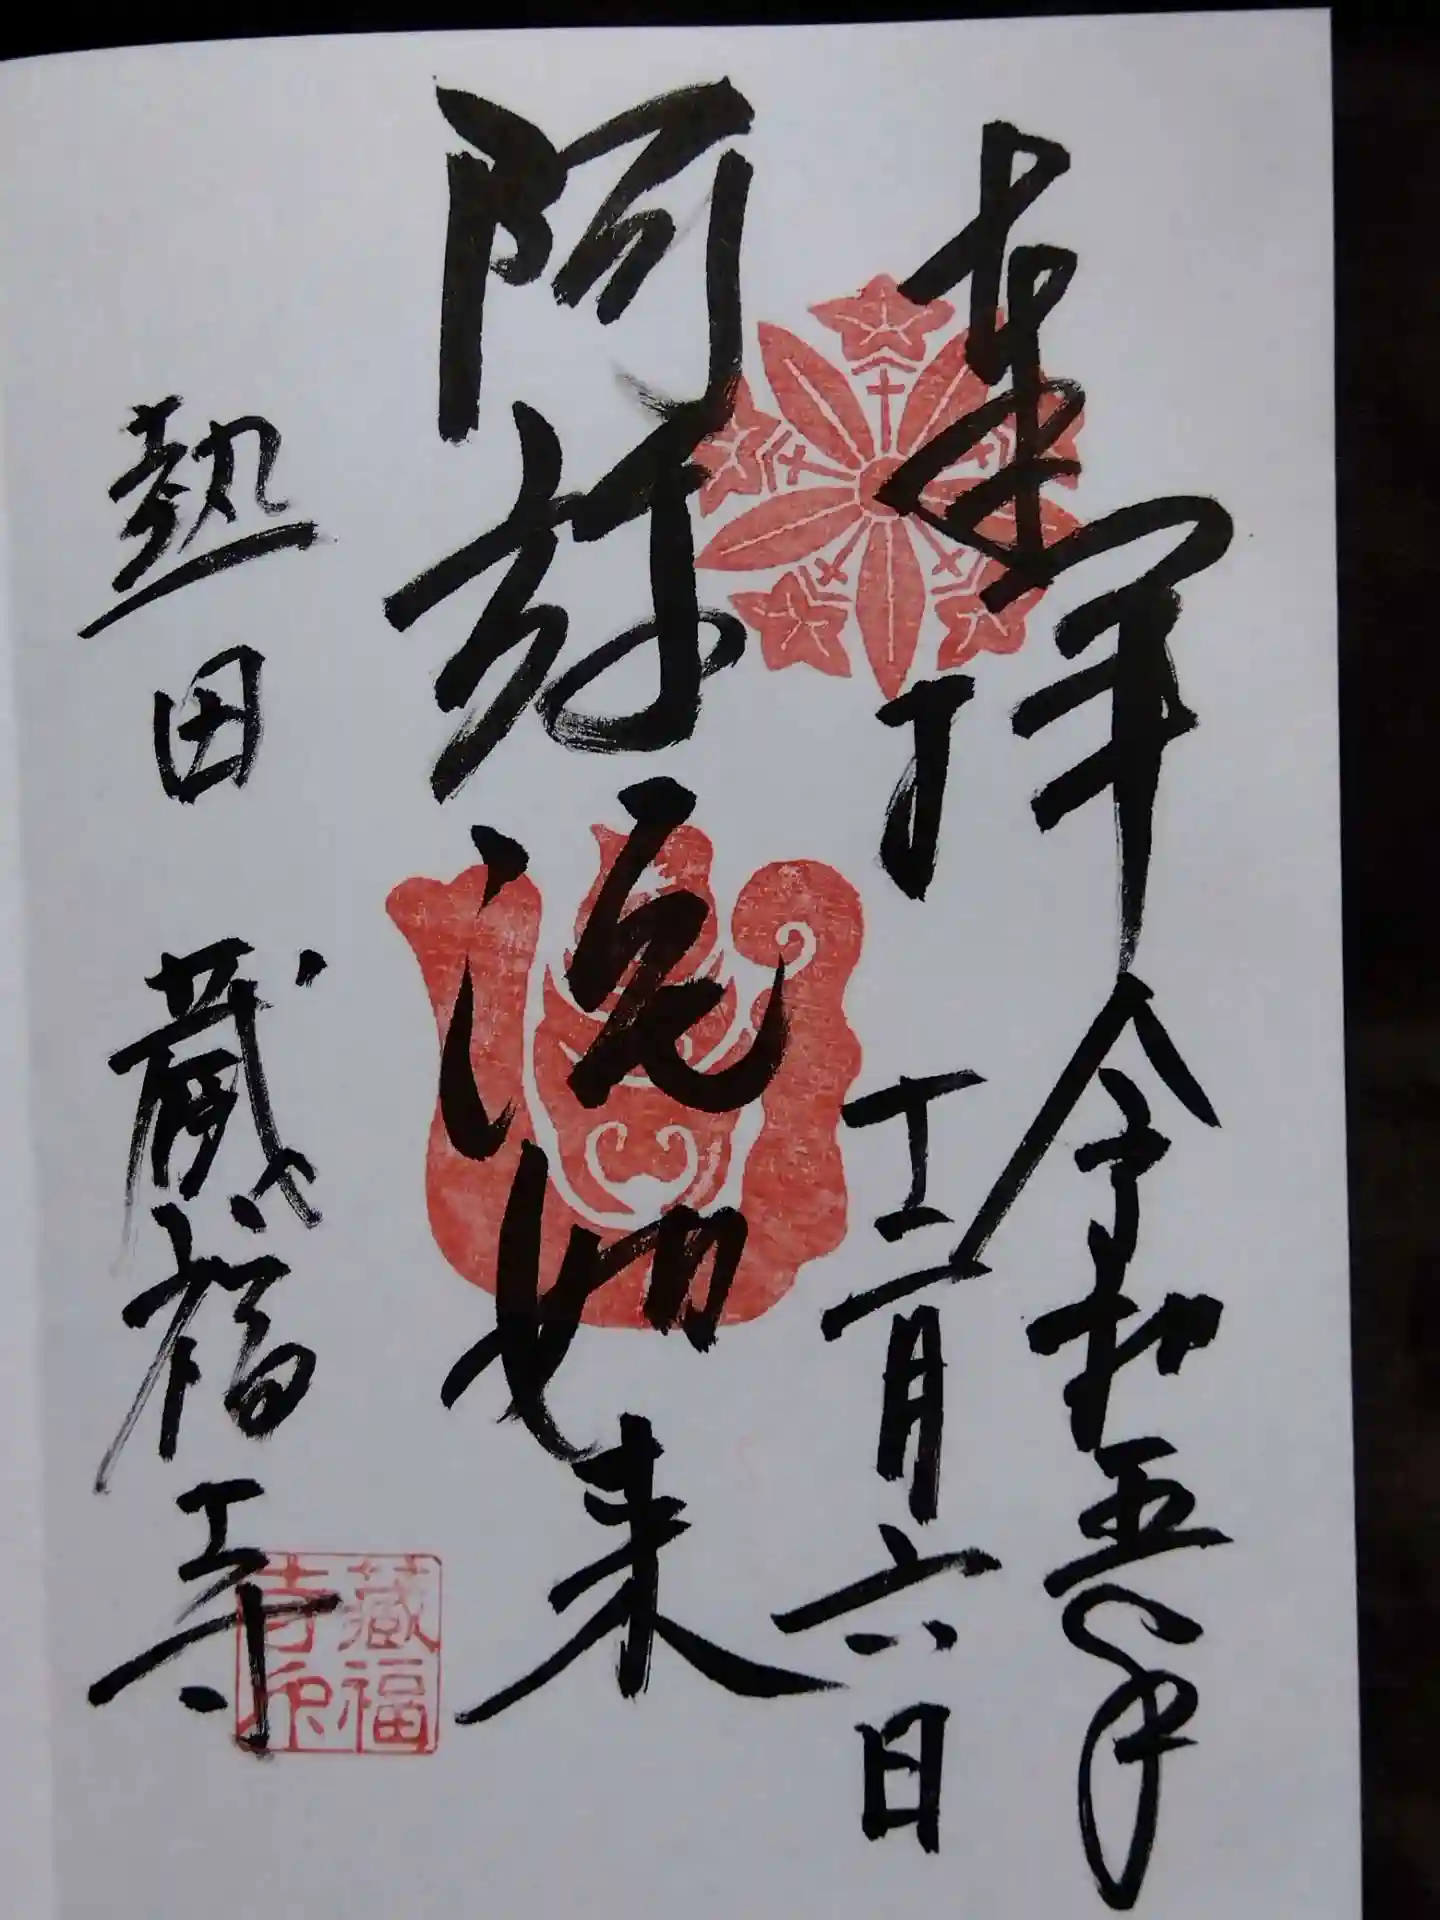 奉拝 令和五年
十二月六日
阿弥陀如来
熱田 蔵福寺
藏福
寺印